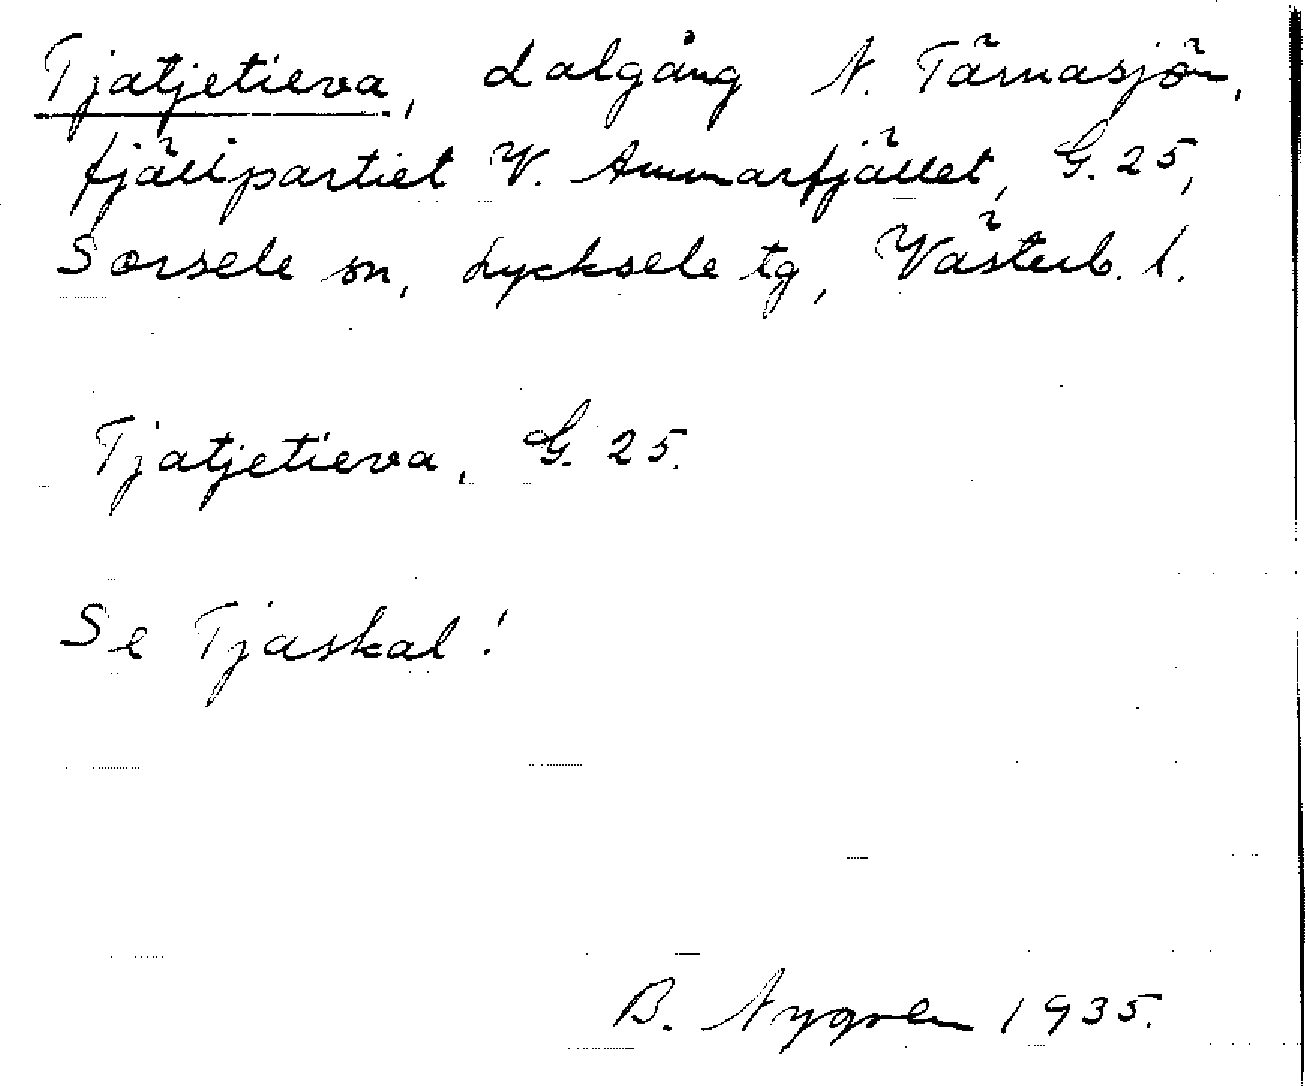 Tjatjetieva, dalgång N. Tärnasjön,
fjällpartiet V. Ammarfjället, G. 25,
Sorsele sn, Lycksele tg, Västerb. l.
Tjatjetieva, G. 25.
Se Tjaskal!
B. Nygren 1935.